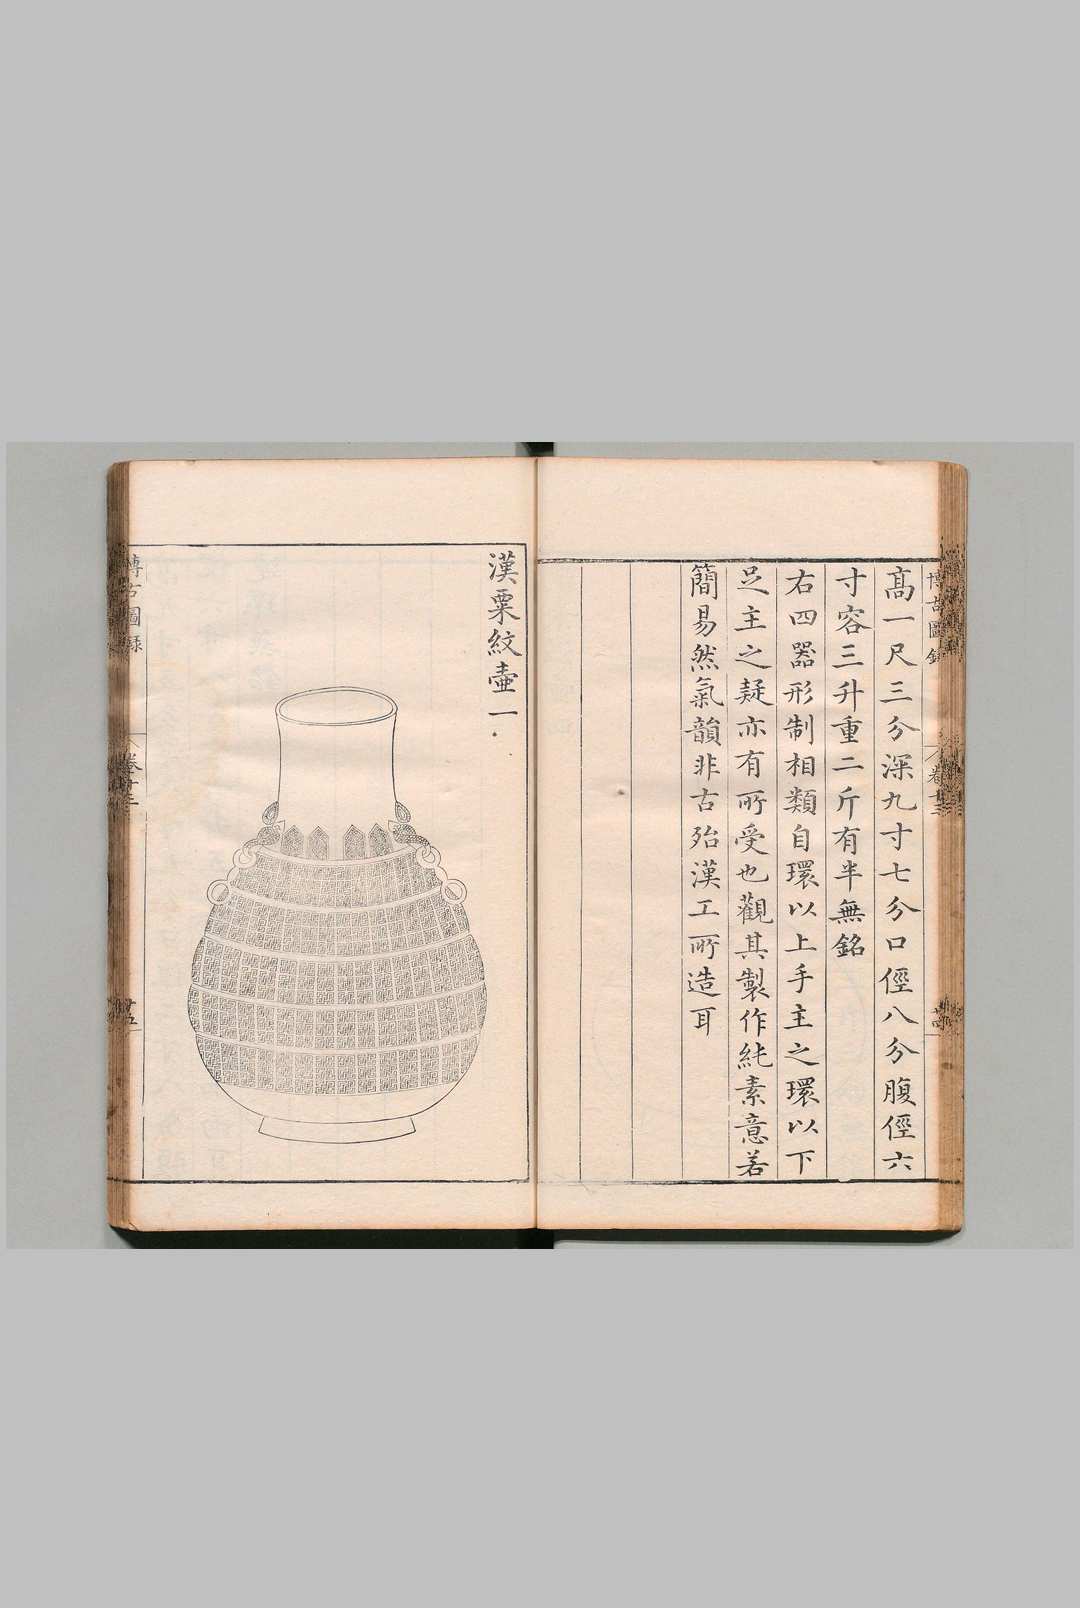 高一尺三分深九寸七分口徑八分腹徑六
寸容三升重二斤有半無銘
右四器形制相類自環以上手主之環以下
足主之疑亦有所受也觀其製作純素意若
簡易然氣韻非古殆漢工所造耳
漢粟紋壺一
博古圖錄
卷十三
博古圖錄
卷十三
廿五